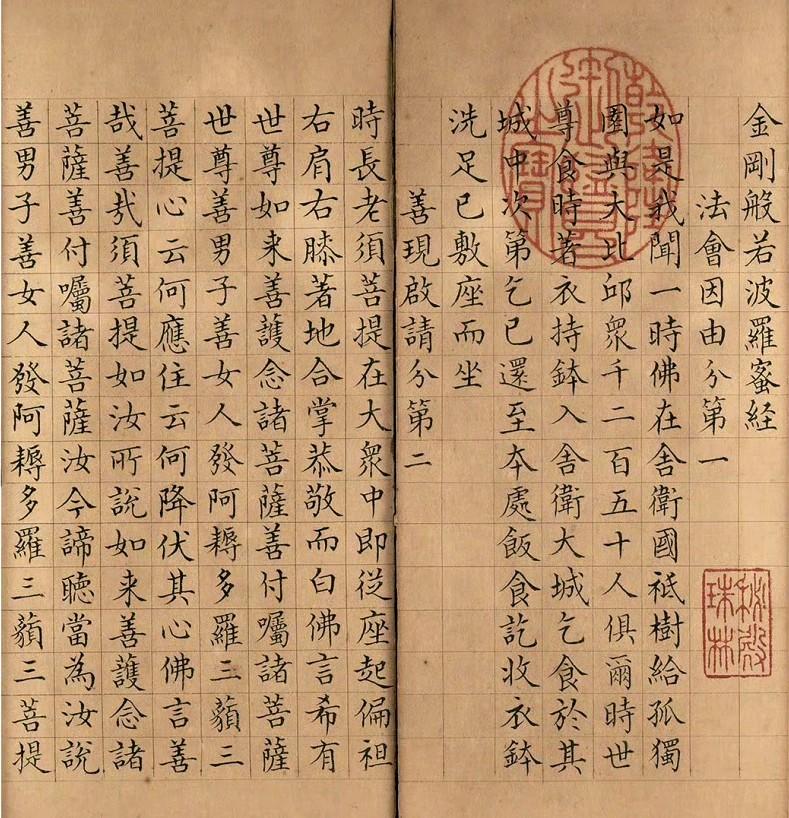 金剛般若波羅蜜経
法會因由分第一
如是我聞一時佛在舎衛國祇樹給孤獨
園與大比邱衆千二百五十人俱爾時世
尊食時著衣持鉢入舎衛大城乞食於其
城中次第乞已還至本處飯食訖收衣鉢
洗足已敷座而坐
善現啟請分第二
時長老須菩提在大衆中即從座起偏袒
右肩右膝著地合掌恭敬而白佛言希有
世尊如来善護念諸菩薩善付囑諸菩薩
世尊善男子善女人發阿耨多羅三藐三
菩提心云何應住云何降伏其心佛言善
哉善哉須菩提如汝所說如来善護念諸
菩薩善付囑諸菩薩汝今諦聽當為汝說
善男子善女人發阿耨多羅三藐三菩提
秘殿
珠林